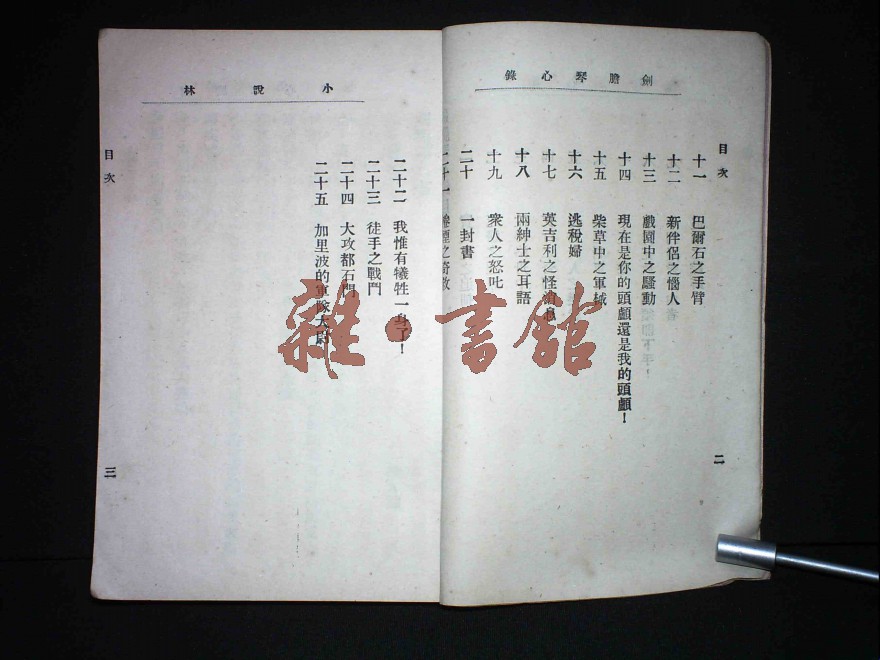 劍膽琴心錄
目次
十一 巴爾石之手臂
十二 新伴侶之惱人
十三 戲園中之騷動
十四 現在是你的頭顱還是我的頭顱！
十五 柴草中之軍械
十六 逃稅婦
十七 英吉利之怪
十八 兩紳士之耳語
十九 衆人之怒叱
二十 一封書
二
小說林
目次
二十二 我惟有犧牲一身了！
二十三 徒手之戰鬥
二十四 大攻都石門
二十五 加里波的軍隊大尉
三
雜·書館